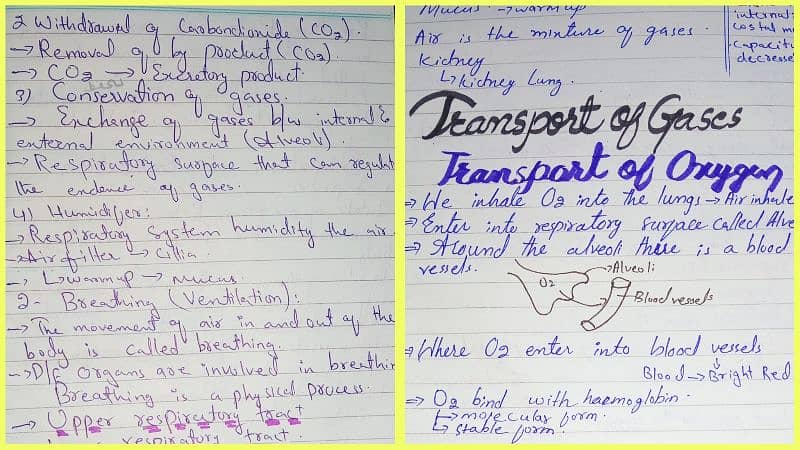 2 Withdrawal of Carbondioxide (CO2).
→ Removal of by product (CO2).
→ CO2 → Excratory product.
3) Conservation of gases.
→ Exchange of gases b/w internal &
external environment (Alveoli).
→ Respiratory surface that can regulat
the endance of gases.
4) Humidifer:
→ Respiratory system humidity the air
→ Air filter → Cillia
→ L→ warm up → Mucus.
2- Breathing (Ventilation):
→ The movement of air in and out of the
body is called breathing.
→ D/f organs are involved in breathin
Breathing is a physical process.
→ Upper respiratory tract
respiratory tract.
Mucus → warm up
Air is the mixture of gases.
Kidney
↳ kidney Lung.
internal
costal m
• Capacit
decrease
Transport of Gases
Transport of Oxygen
⇒ We inhale O2 into the lungs → Air inhale
⇒ Enter into respiratory surface called Alve
⇒ Around the alveoli there is a blood
vessels.
→ Alveoli
O2
→ Blood vessels
⇒ Where O2 enter into blood vessels
Blood → Bright Red
⇒ O2 bind with haemoglobin.
↳ molecular form.
↳ stable form.